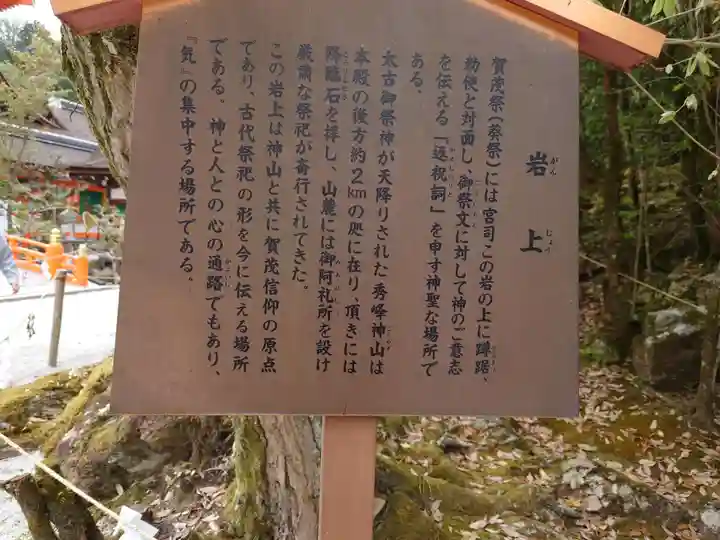 岩上
がんじょう
賀茂祭(葵祭)には宮司この岩の上に蹲踞、
勅使と対面し、御祭文に対して神のご意志
を伝える「返祝詞」を申す神聖な場所で
ある。
太古御祭神が天降りされた秀峰神山は
本殿の後方約2kmの処に在り、頂きには
降臨石を拝し、山麓には御阿礼所を設け
厳粛な祭祀が斎行されてきた。
この岩上は神山と共に賀茂信仰の原点
であり、古代祭祀の形を今に伝える場所
である。神と人との心の通路でもあり、
『気』の集中する場所である。